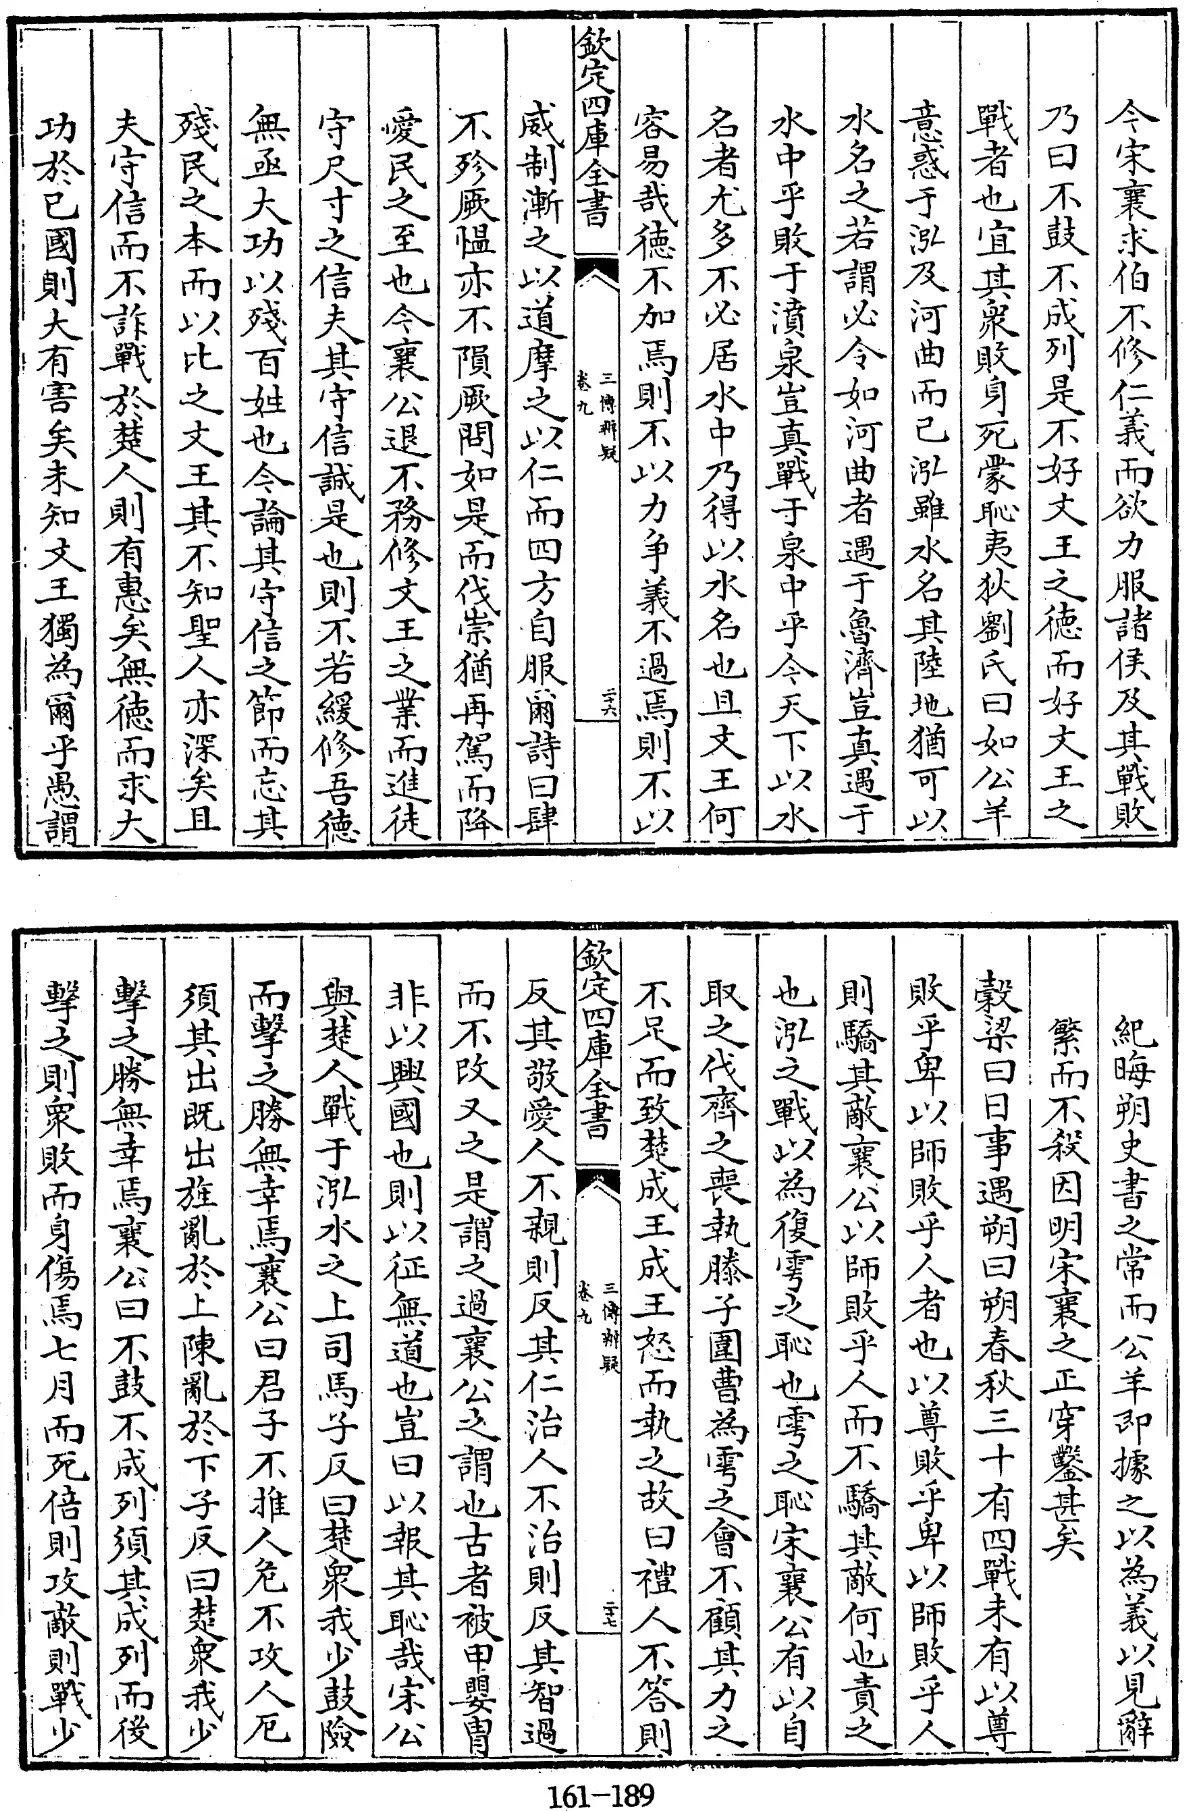 今宋襄求伯不修仁義而欲力服諸侯及其戰敗
乃曰不鼓不成列是不好文王之德而好文王之
戰者也宜其衆敗身死蒙恥夷狄劉氏曰如公羊
意惑于泓及河曲而已泓雖水名其陸地猶可以
水名之若謂必令如河曲者遇于魯濟豈真遇于
水中乎敗于濆泉豈真戰于泉中乎今天下以水
名者尤多不必居水中乃得以水名也且文王何
容易哉德不加焉則不以力争義不過焉則不以
欽定四庫全書
三傳辨疑
卷九
二十六
威制漸之以道摩之以仁而四方自服爾詩曰肆
不殄厥愠亦不隕厥問如是而伐崇猶再駕而降
愛民之至也今襄公退不務修文王之業而進徒
守尺寸之信夫其守信誠是也則不若緩修吾德
無亟大功以殘百姓也今論其守信之節而忘其
殘民之本而以比之文王其不知聖人亦深矣且
夫守信而不詐戰於楚人則有惠矣無德而求大
功於已國則大有害矣未知文王獨為爾乎愚謂
紀晦朔史書之常而公羊即據之以為義以見辭
繁而不殺因明宋襄之正穿鑿甚矣
穀梁曰日事遇朔曰朔春秋三十有四戰未有以尊
敗乎卑以師敗乎人者也以尊敗乎卑以師敗乎人
則驕其敵襄公以師敗乎人而不驕其敵何也責之
也泓之戰以為復雩之恥也雩之恥宋襄公有以自
取之伐齊之喪執滕子圍曹為雩之會不顧其力之
不足而致楚成王成王怒而執之故曰禮人不答則
欽定四庫全書
三傳辨疑
卷九
二十七
反其敬愛人不親則反其仁治人不治則反其智過
而不改又之是謂之過襄公之謂也古者被甲嬰胄
非以興國也則以征無道也豈曰以報其恥哉宋公
與楚人戰于泓水之上司馬子反曰楚衆我少鼓險
而擊之勝無幸焉襄公曰君子不推人危不攻人厄
須其出既出旌亂於上陳亂於下子反曰楚衆我少
擊之勝無幸焉襄公曰不鼓不成列須其成列而後
擊之則衆敗而身傷焉七月而死倍則攻敵則戰少
161-189